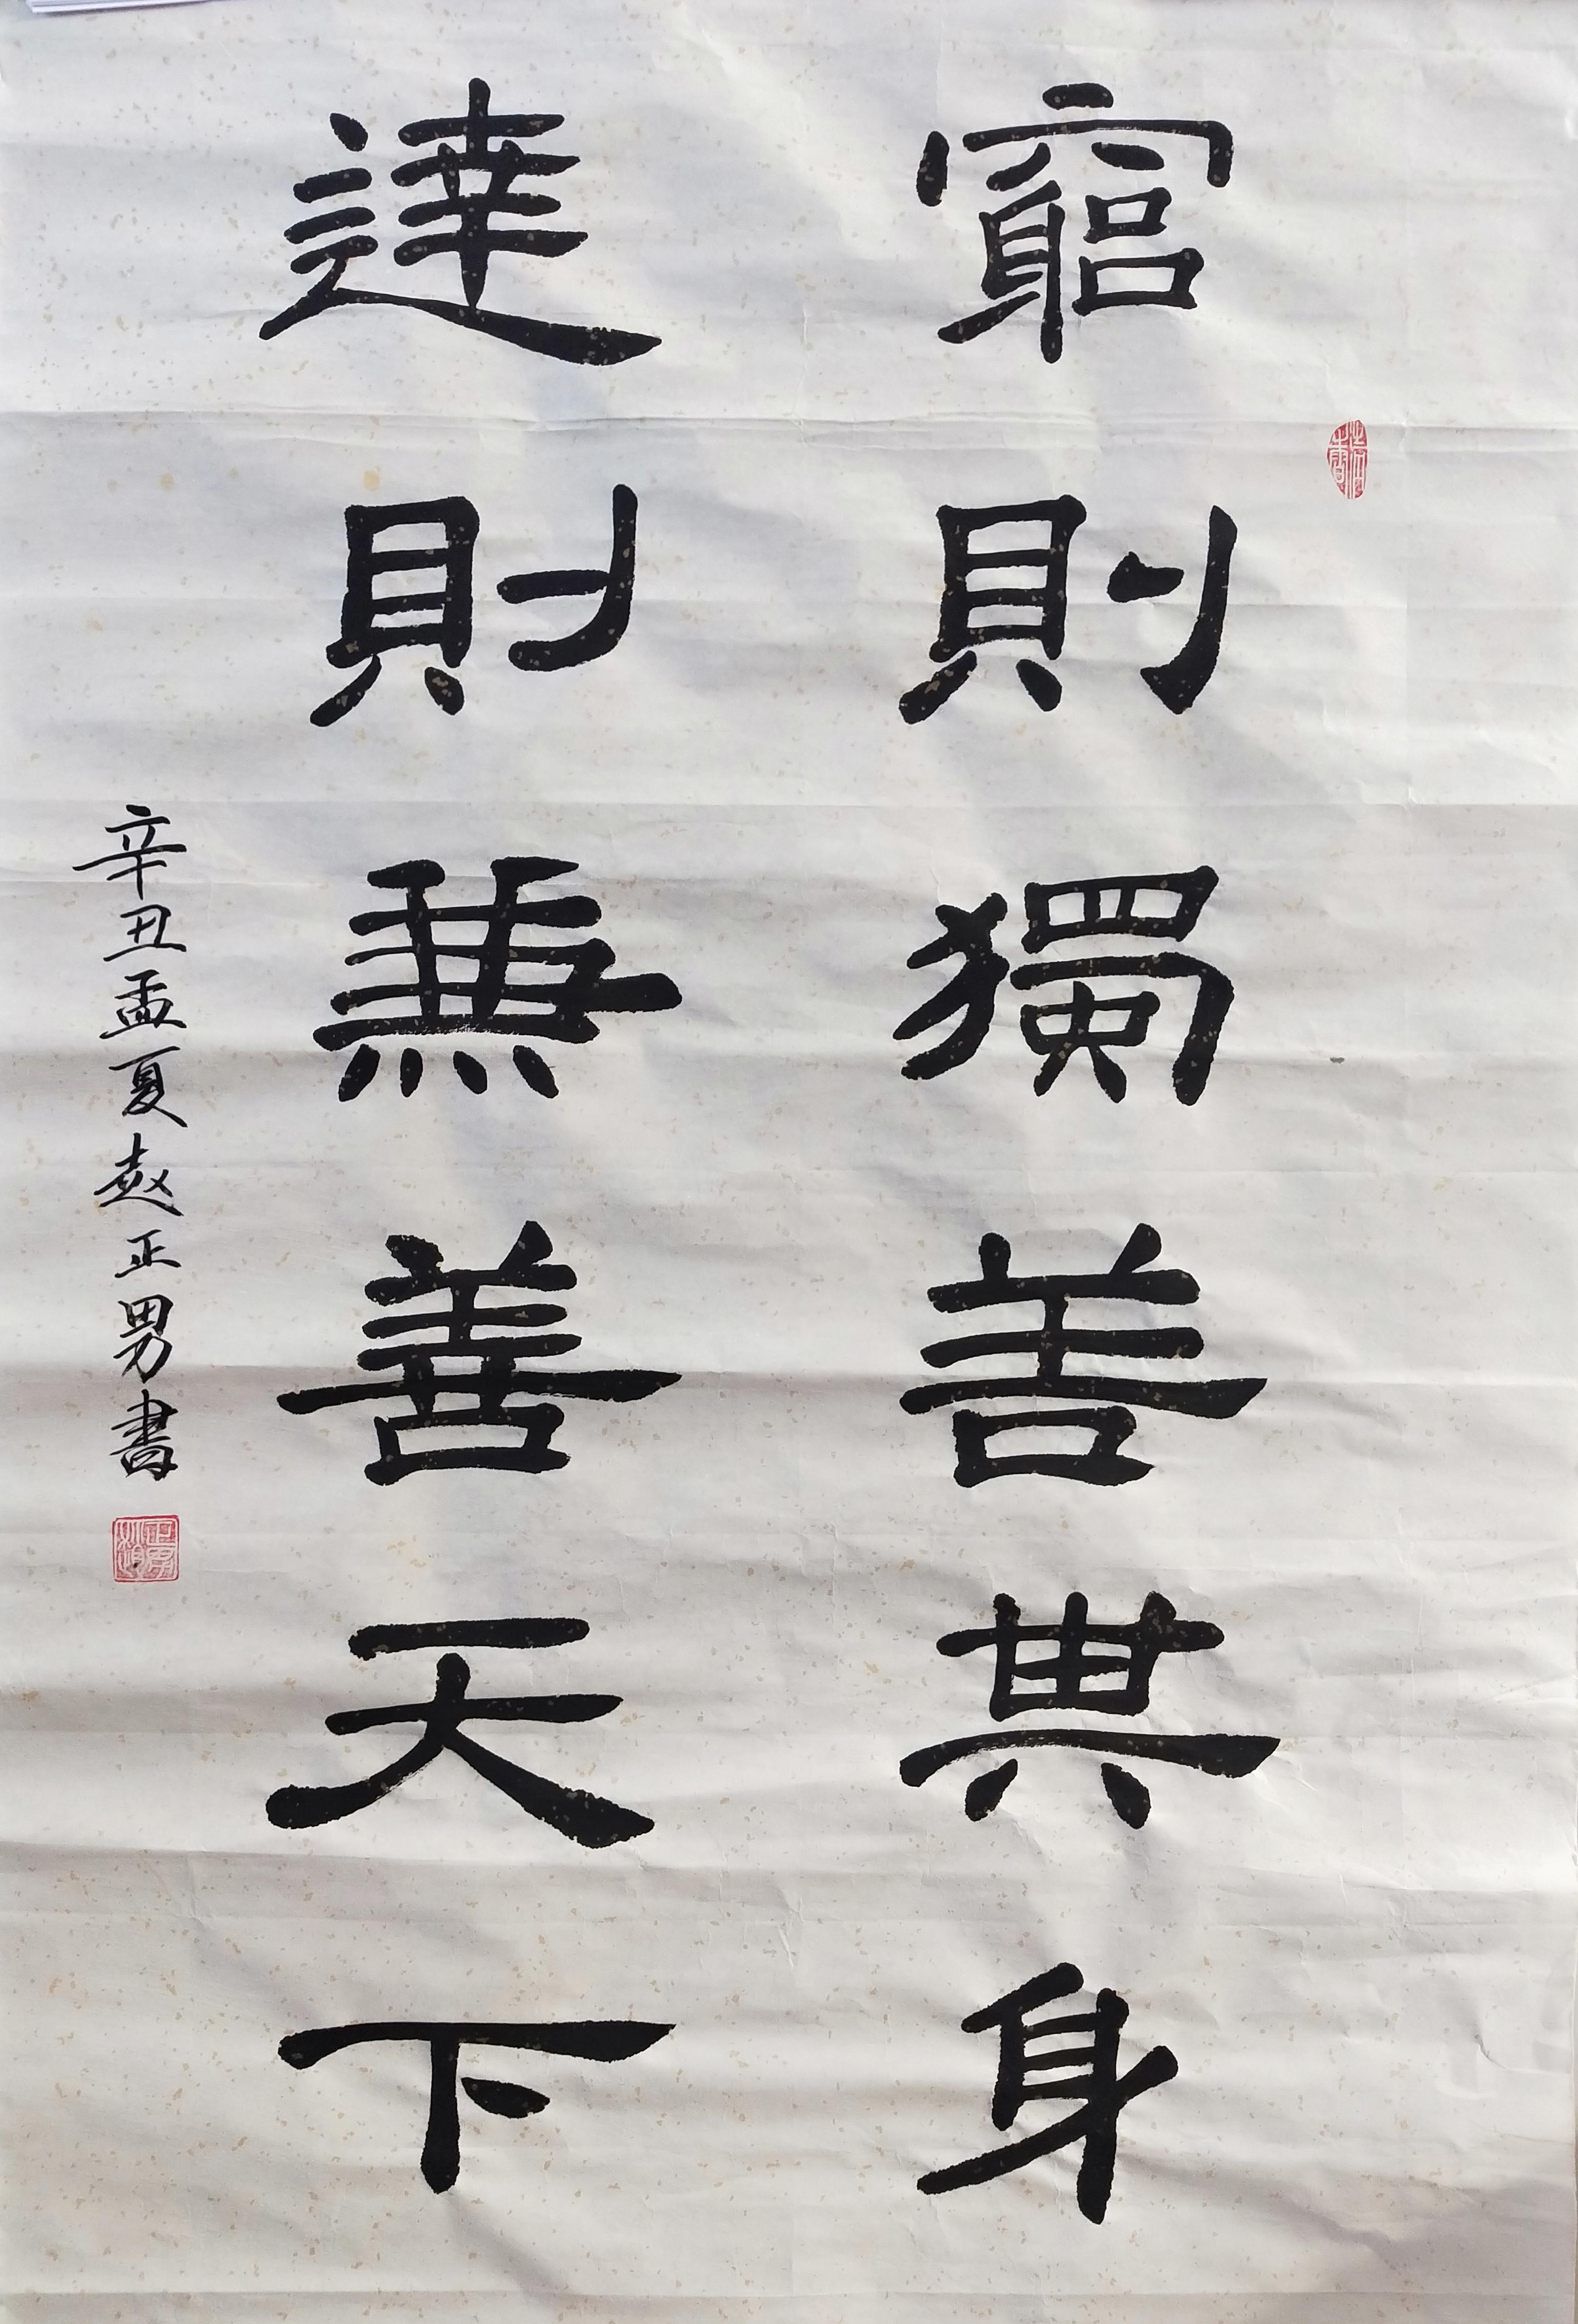 窮則獨善其身
達則兼善天下
辛丑孟夏趙正男書